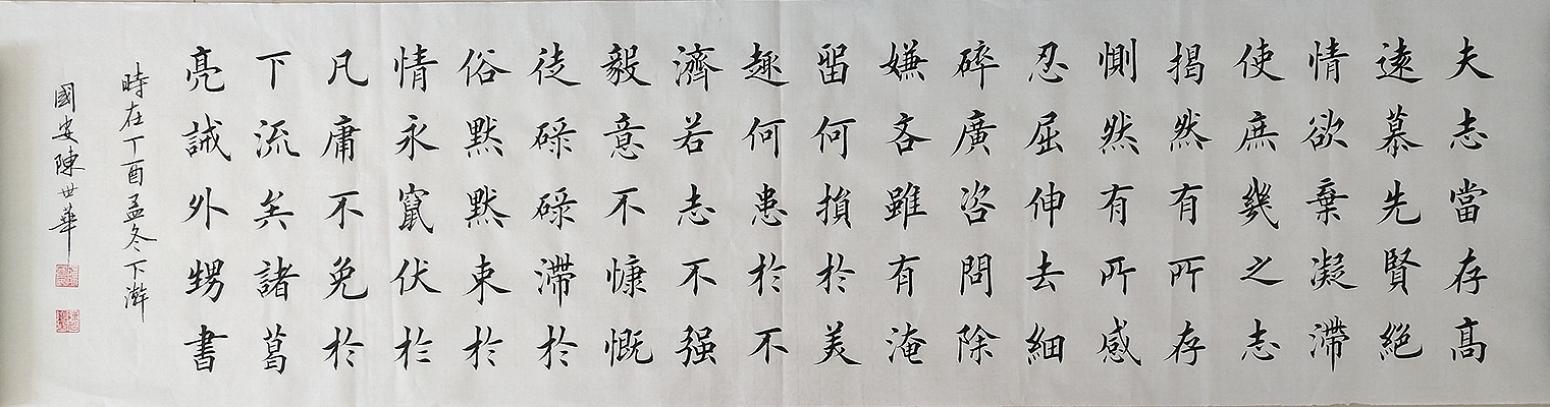 夫志當存高
遠慕先賢絕
情欲棄凝滯
使庶幾之志
揭然有所存
惻然有所感
忍屈伸去細
碎廣咨問除
嫌吝雖有淹
留何損於美
趣何患於不
濟若志不强
毅意不慷慨
徒碌碌滯於
俗默默束於
情永竄伏於
凡庸不免於
下流矣諸葛
亮誡外甥書
時在丁酉孟冬下澣
國安陳世華